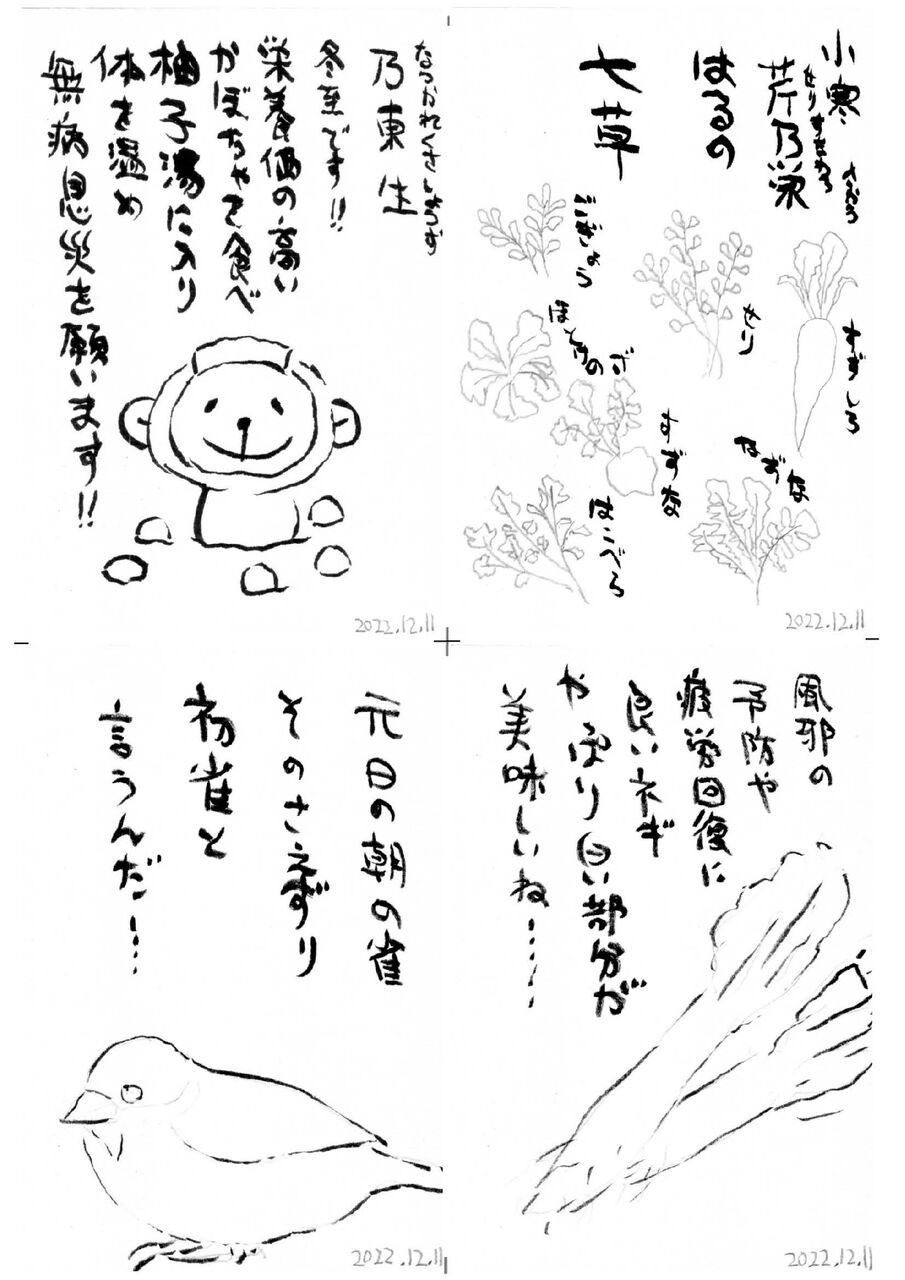 なつかれくさしょうず
乃東生
冬至です!!
栄養価の高い
かぼちゃを食べ
柚子湯に入り
体を温め
無病息災を願います!!
2022.12.11
小寒
せりすなわち
芹乃栄
はるの
七草
すずしろ
せり
ごぎょう
ほとけのざ
なずな
すずな
はこべら
2022.12.11
元日の朝の雀
そのさえずり
初雀と
言うんだ…
2022.12.11
風邪の
予防や
疲労回復に
良いネギ
やっぱり白い部分が
美味しいね……
2022.12.11